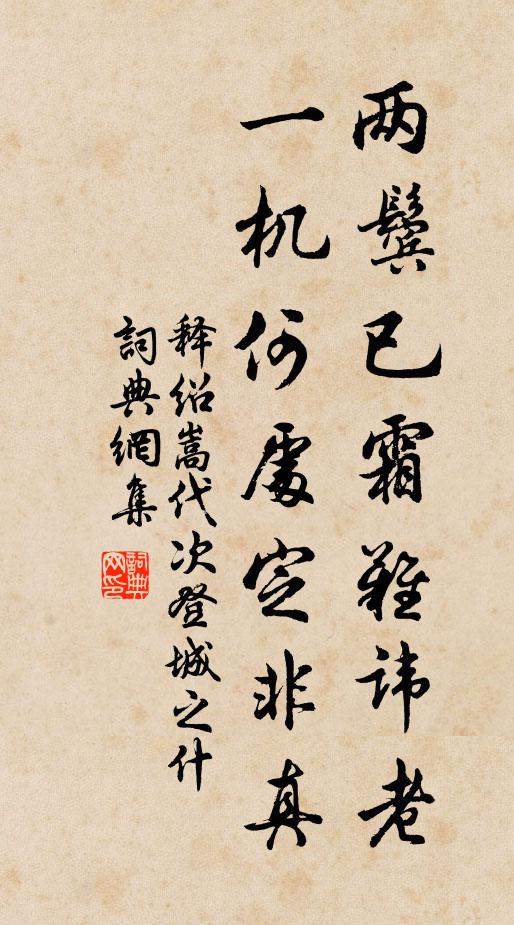 两鬓已霜难讳老
一机何处定非真
释绍嵩代次登城之什
詞典網集
詞典網印